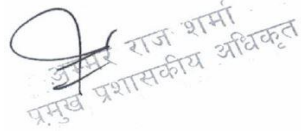 झम्मर राज शर्मा
प्रमुख प्रशासकीय अधिकृत